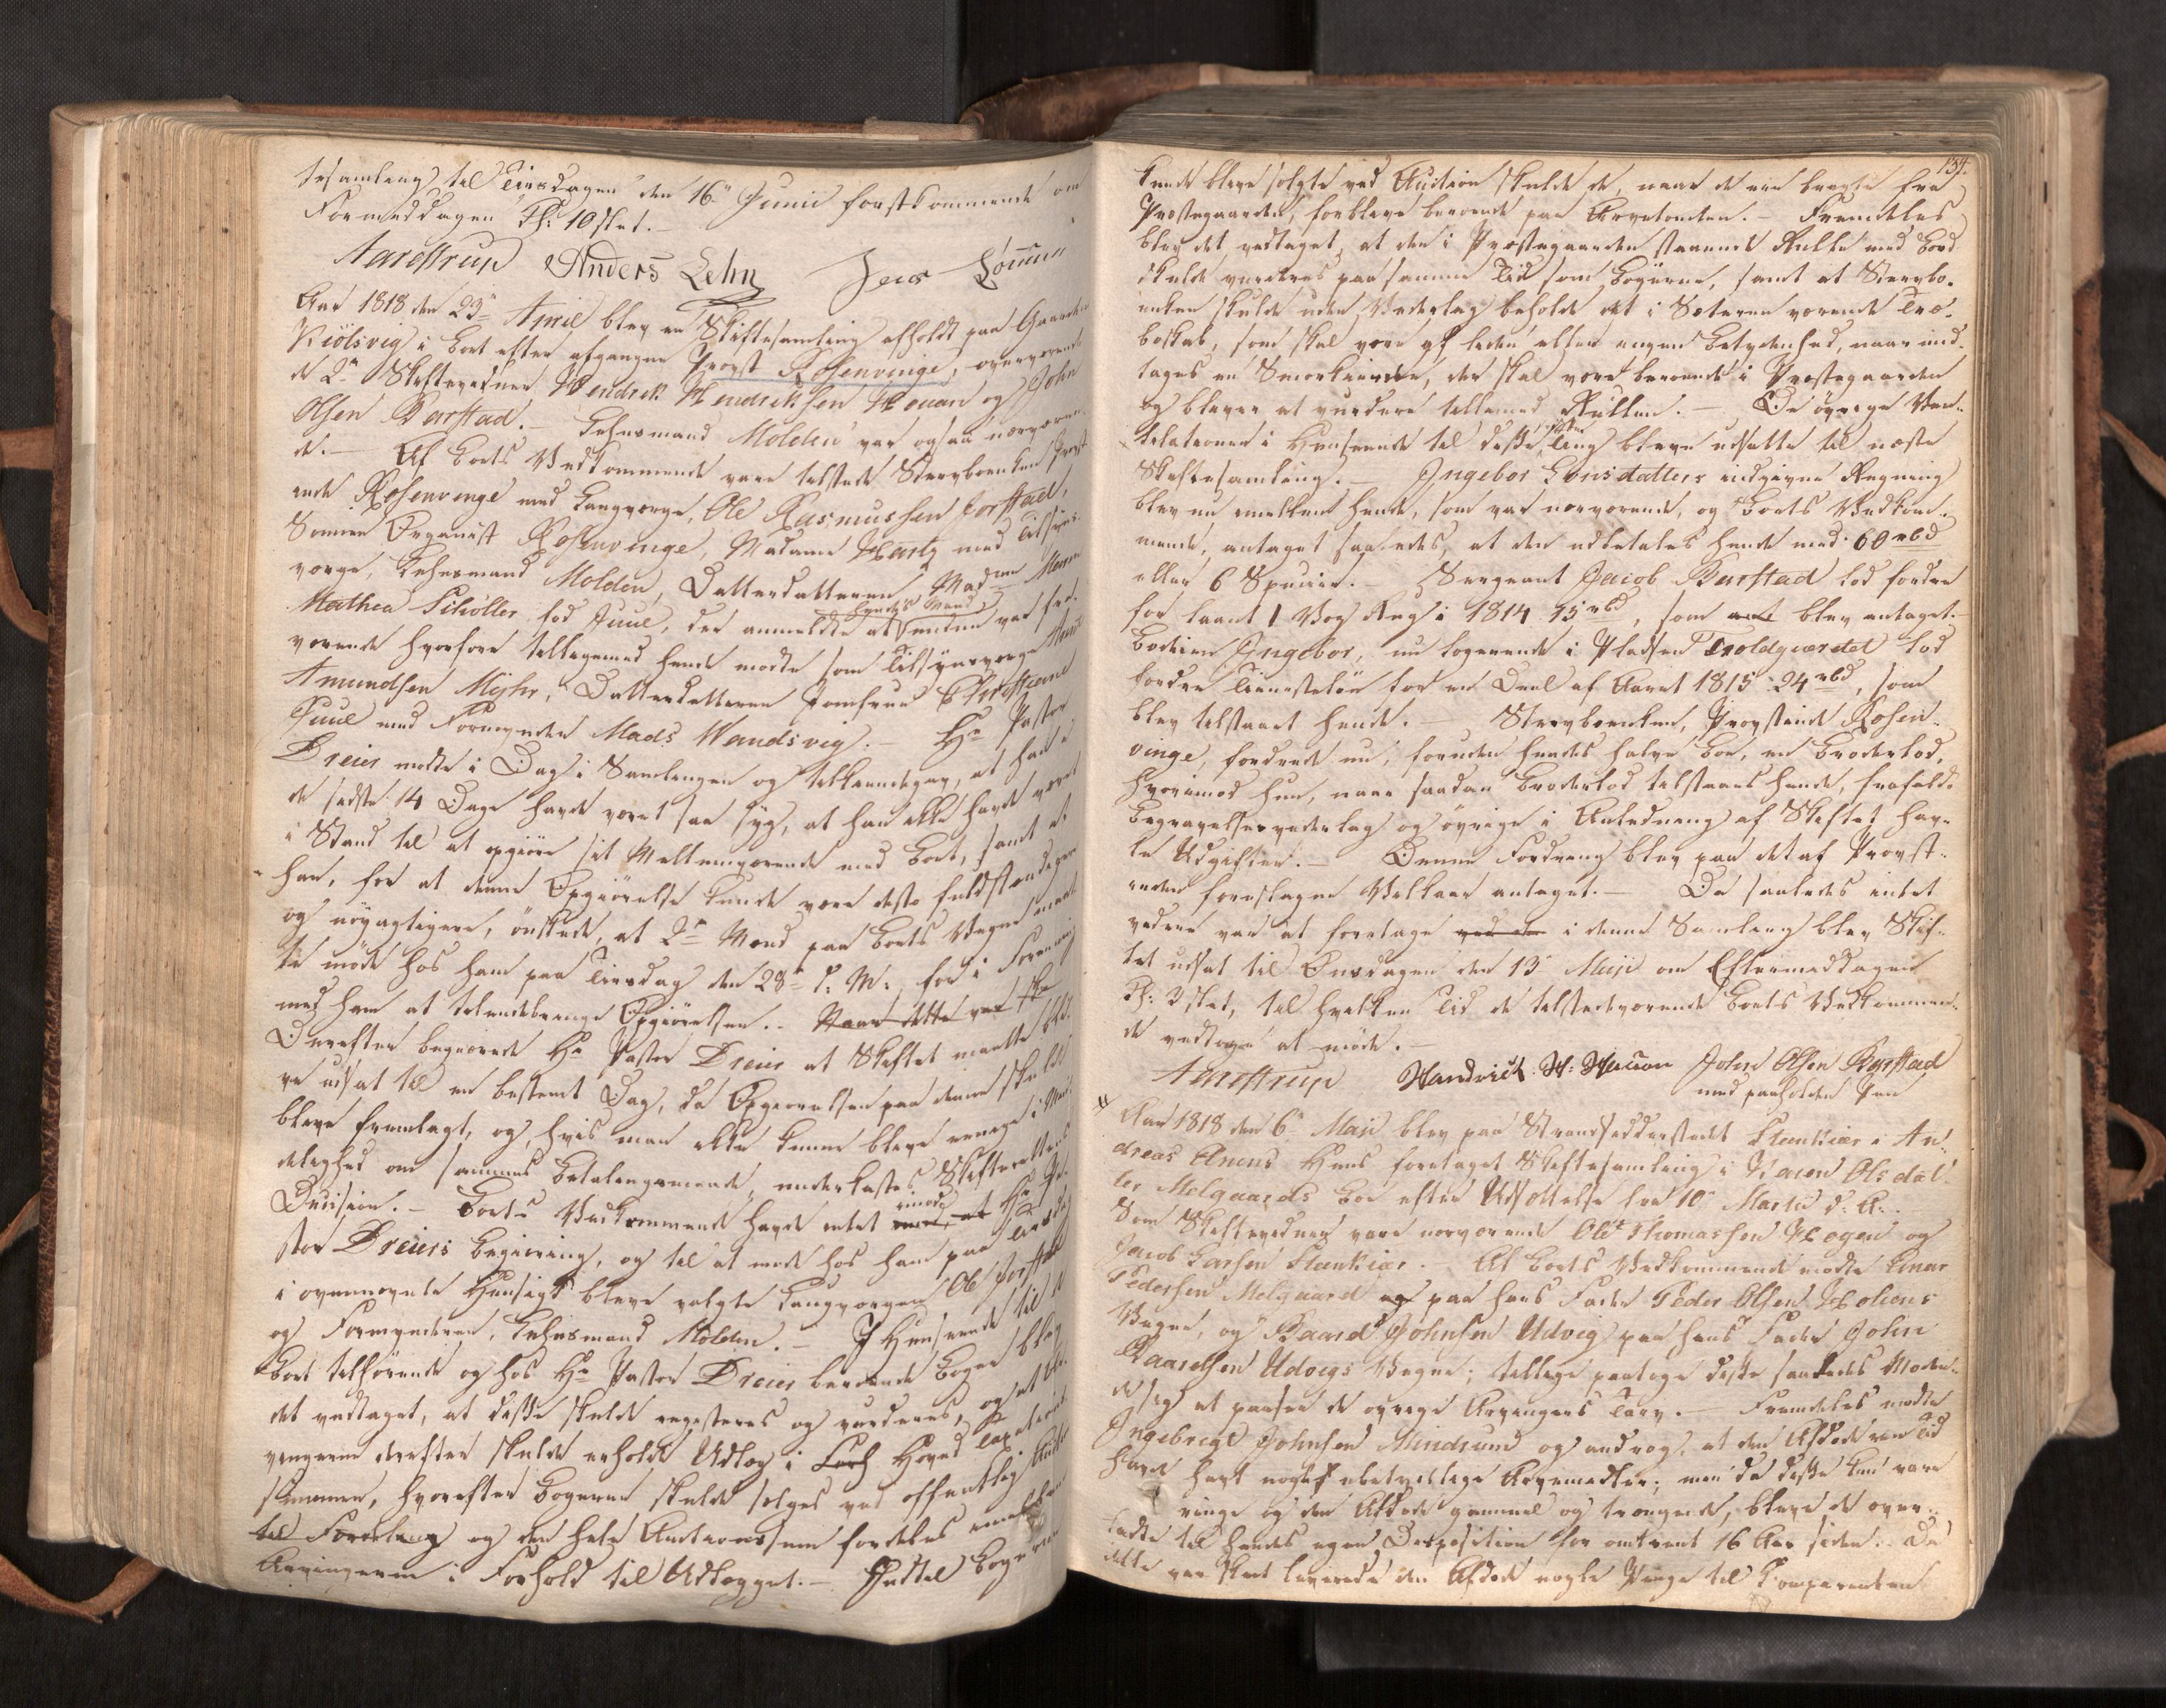 tesamling til Tirsdagen den 16de Junii førstkommende om
Formeddagen Kl: 10 slet.-
Aarestrup Anders Lehn Jens
Aar 1818 den 23de April blev en Skiftesamling afholdt paa Gaarden
Kiølsvig i Boet efter afgangne Provst Rosenvinge, overværende
de 2de Skiftevidner, Hendrich Hendrichsen Houan og John
Olsen Barstad.- Lehnsmand Molden var ogsaa nærværen-
de.- Af Boets Vedkommende vare tilstede Stervboenken Provst-
inde Rosenvinge med Laugværge, Ole Rasmussen Forstad,
Sønnen Organist Rosenvinge, Madame Hartz med Tilsyns-
værge, Lehnsmand Molden, Datterdatteren Madme Maren
Mathea Schøller fød Juul, der anmeldte at hendes Mand var fra-
værende hvorfore tilligemed hende mødte som Tilsynsværge
Amundsen Myhr, Datterdatteren Jomfrue Christiane
Juul med Formynder Mads Wandsvig.- Hr Pastor
Dreier mødte i Dag i Samlingen og tilkiendegav, at han i
de sidste 14 Dage havde været saa syg, at han ikke havde været
i Stand til at opgiøre sit Mellemværende med Boet, samt at
han, for at denne Opgiørelse kunde være desto fuldstændigere
og nøyagtigere, ønskede, at 2de Mænd paa Boets Vegne maat-
te møde hos ham paa Tirsdag den 28de d: M:, for i Forening
med ham at tilendebringe Opgiørelsen.- Naar dette var ske
Derefter begierede Hr Pastor Dreier at Skiftet maatte bli-
ve udsat til en bestemt Dag, da Opgiørelsen paa denne skulde
blive fremlagt, og, hvis man ikke kunne blive eenige i Min-
delighed om sammes Betalingsmaade, underkastes Skifterettens
Decision.- Boets Vedkommende havde intet imod Hr Pa-
stor Dreiers Begiering, og til at møde hos ham paa Tirsdag
i ovennævnte Hensigt bleve valgte Laugværgen Ole Forstad
og Formynderen, Lehnsmand Molden.- I Henseende til de
Boet tilhørende og hos Hr Pastor Dreier beroende Bøger blev
det vedtaget, at disse skulde registeres og vurderes, og at
vingerne derefter skulde erholde Udlæg i Hoved Taxations
summen, hvorefter Bøgerne skulde sælges ved offentlig Auction
til Fordeling og den hele Auctionssum fordeles imellem
Arvingerne i Forhold til Udlægget.- Indtil Bøgerne
134.
kunde blive solgte ved Auction skulde de, naar de ere bragte fra
Præstegaarden, forblive beroende paa Arvetomten.- Fremdeles
blev det vedtaget, at den i Præstegaarden staaende Rulle med Bord
skulde vurderes paa samme Tid som Bøgerne, samt at Stervbo-
enken skulde uden Vederlag beholde det i Sæteren værende Træ-
boskab, som skal være af liden eller ingen Betydenhed, naar und-
tages en Smørkierne, der skal være beroende i Præstegaarden
og bliver at vurdere tillemed Rullen.- De øvrige Ven-
tilationer i Henseende til disse sidste Ting bleve udsatte til næste
Skiftesamling.- Ingebor Lonsdatters indgivne Regning
blev nu imellem hende, som var nærværende, og Boets Vedkom-
mende, antaget saaledes, at den udbetales hende med 60 rbd
eller 6 Specier.- Sergeant Jacob Barstad lod fordre
for laant 1 Vog Rug i 1814 15 rbd, som blev antaget.-
Ingebor, nu logerende i Pladsen Troldgierdet lod
fordre Tienesteløn for en Deel af Aaret 1815 24 rbd, som
blev tilstaaet hende.- Stervboenken, Provstinde Rosen-
vinge, fordrede nu, foruden hendes halve Boe, en Broderlod,
hvorimod hun, naar saadan Broderlod tilstaaes hende, frafaldt
Begravelsesvederlag og øvrige i Anledning af Skiftet hav-
te Udgifter.- Denne Fordring blev paa det af Provst-
inden foreslagne Vilkaar antaget.- Da saaledes intet
videre var at foretage ved de i denne Samling blev Skif-
tet udsat til Onsdagen den 13de Maji om Eftermeddagen
Kl: 3 slet, til hvilken Tid de tilstedeværende Boets Vedkommen-
de vedtoge at møde.-
Aarestrup Handrich H: Hauan John Olsen Barstad
med paaholden Pen
Aar 1818 den 6te Maji blev paa Strandsidderstedet Flankiær i An-
dreas Anens Huus foretaget Skiftesamling i Karen Olsdat-
ter Melgaards Boe efter Udsættelse fra 10de Martii d: A:.
Som Skiftevidner vare nærværende Ole Thomassen Hogen og
Jacob Larsen Flankiær.- Af Boets Vedkommende mødte Einar
Pedersen Melgaard og paa hans Fader Peder Olsen Holiens
Vegne, og Baard Johnsen Udvig paa hans Fader John
Baardsen Udvigs Vegne; tillige paatoge disse saaledes Møden-
de sig at paasee de øvrige Arvingers Tarv.- Fremdeles mødte
Ingebrigt Johnsen Mindsund og androg, at den Afdøde vel
havde havt nogle ubetydelige Arvemidler; men da disse kun vare
ringe og den Afdøde gammel og trængende, bleve de over-
ladte til hendes egen Disposition for omtrent 16 Aar siden.- Da
dette var skeet leverede den Afdøde nogle Penge til Comparenten